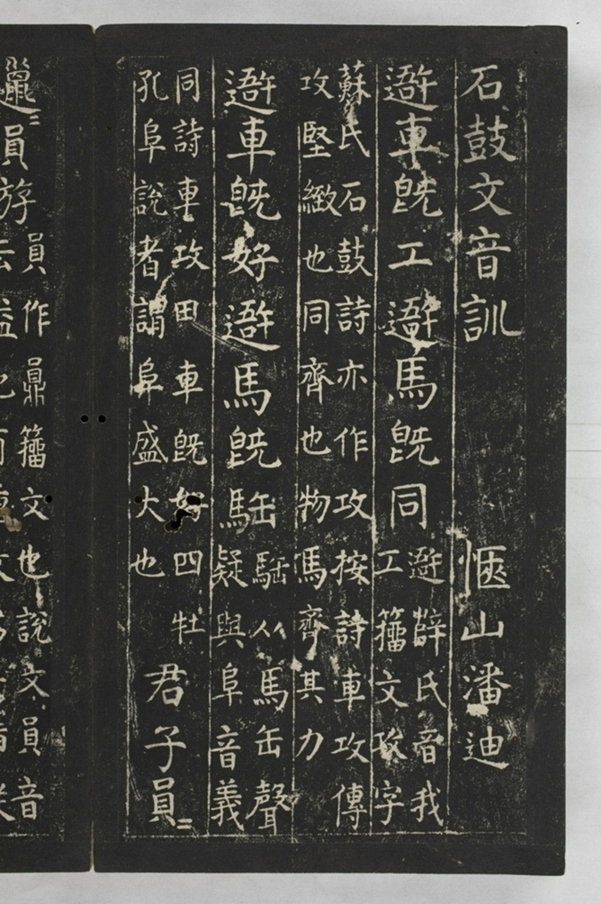 石鼓文音訓 愜山潘迪
車旣工馬旣同
薛氏音我
工籀文攻字
蘇氏石鼓詩亦作攻按詩車攻傳
攻堅緻也同齊也物馬齊其力
車旣好馬旣
从馬缶聲
疑與阜音義
同詩車攻田車旣好四牡
孔阜說者謂阜盛大也
君子員=
員游
員作籀文也說文員音